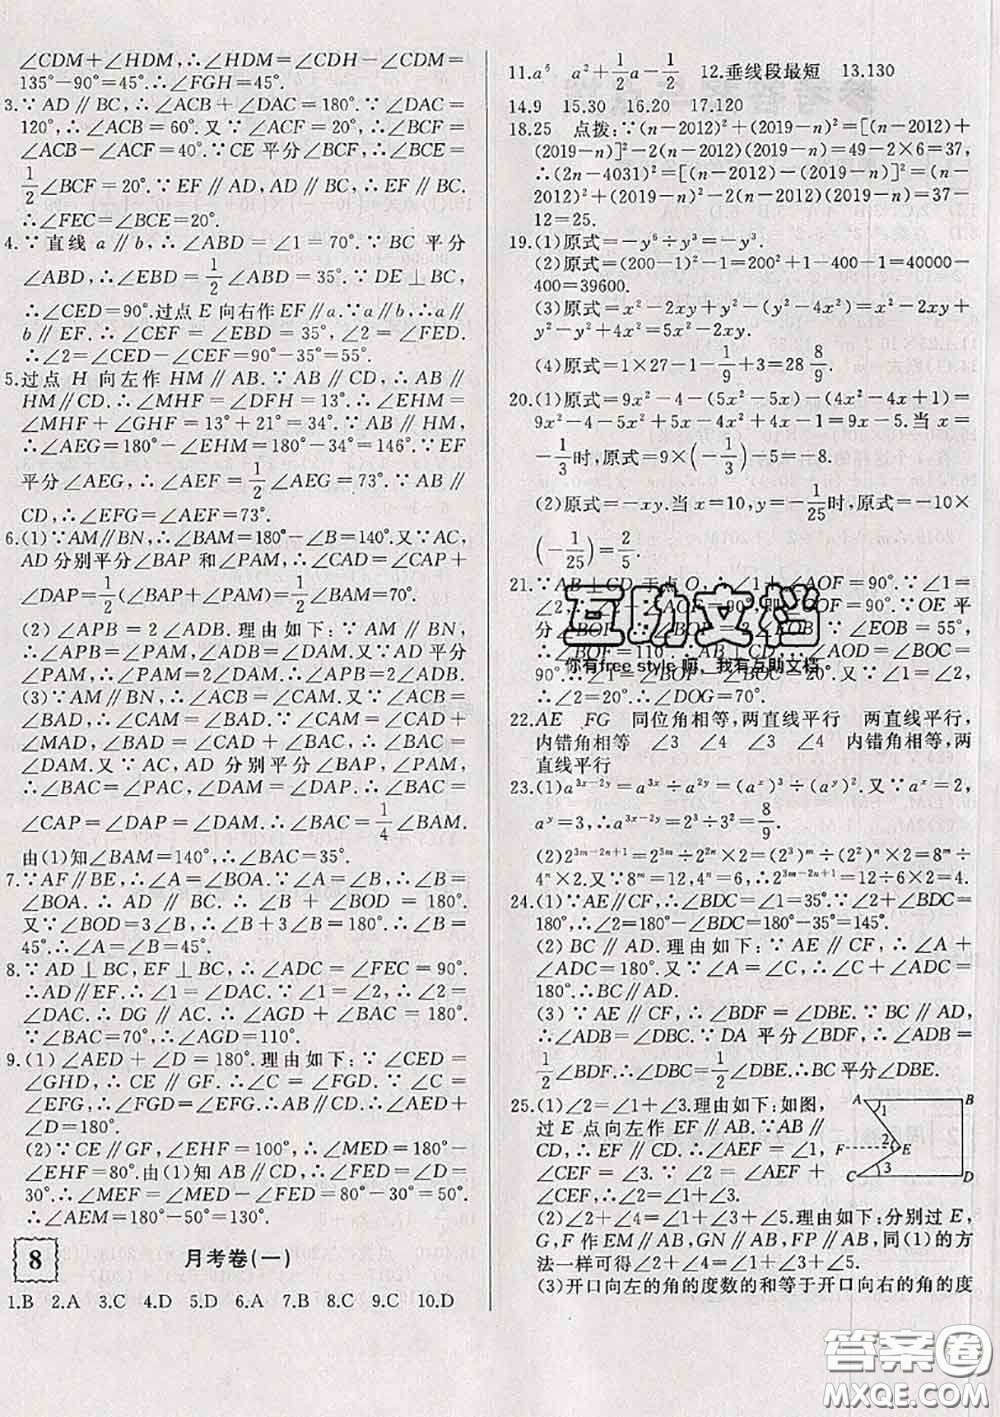 ∠CDM+∠HDM,∴∠HDM=∠CDH-∠CDM=
135°-90°=45°.∴∠FGH=45°.
3.∵AD∥BC,∴∠ACB+∠DAC=180°.∵∠DAC=
120°,∴∠ACB=60°.又∵∠ACF=20°,∴∠BCF=
∠ACB-∠ACF=40°.∵CE平分∠BCF,∴∠BCE=
1/2∠BCF=20°.∵EF∥AD,AD∥BC,∴EF∥BC.
∴∠FEC=∠BCE=20°.
4.∵直线a∥b,∴∠ABD=∠1=70°.∵BC平分
∠ABD,∴∠EBD=1/2∠ABD=35°.∵DE⊥BC,
∴∠CED=90°.过点E向右作EF∥a.∵a∥b,∴a∥
b∥EF.∴∠CEF=∠EBD=35°,∠2=∠FED.
∴∠2=∠CED-∠CEF=90°-35°=55°.
5.过点H向左作HM∥AB.∵AB∥CD,∴AB∥
HM∥CD.∴∠MHF=∠DFH=13°.∴∠EHM=
∠MHF+∠GHF=13°+21°=34°.∵AB∥HM,
∴∠AEG=180°-∠EHM=180°-34°=146°.∵EF
平分∠AEG,∴∠AEF=1/2∠AEG=73°.∵AB∥
CD,∴∠EFG=∠AEF=73°.
6.(1)∵AM∥BN,∴∠BAM=180°-∠B=140°.又∵AC,
AD分别平分∠BAP和∠PAM,∴∠CAD=∠CAP+
∠DAP=1/2(∠BAP+∠PAM)=1/2∠BAM=70°.
(2)∠APB=2∠ADB.理由如下:∵AM∥BN,
∴∠APB=∠PAM,∠ADB=∠DAM.∵AD平分
∠PAM,∴∠PAM=2∠DAM.∴∠APB=2∠ADB.
(3)∵AM∥BN,∴∠ACB=∠CAM.又∵∠ACB=
∠BAD,∴∠CAM=∠BAD.∵∠CAM=∠CAD+
∠MAD,∠BAD=∠CAD+∠BAC,∴∠BAC=
∠DAM.又∵AC,AD分别平分∠BAP,∠PAM,
∴∠CAP=∠BAC,∠DAP=∠DAM.∴∠BAC=
∠CAP=∠DAP=∠DAM.∴∠BAC=1/4∠BAM.
由(1)知∠BAM=140°,∴∠BAC=35°.
7.∵AF∥BE,∴∠A=∠BOA.∵∠A=∠B,∴∠B=
∠BOA.∴AD∥BC.∴∠B+∠BOD=180°.
又∵∠BOD=3∠B,∴∠B+3∠B=180°.∴∠B=
45°.∴∠A=∠B=45°.
8.∵AD⊥BC,EF⊥BC,∴∠ADC=∠FEC=90°.
∴AD∥EF.∴∠1=∠DAC.∵∠1=∠2,∴∠2=
∠DAC.∴DG∥AC.∴∠AGD+∠BAC=180°.
∵∠BAC=70°,∴∠AGD=110°.
9.(1)∠AED+∠D=180°.理由如下:∵∠CED=
∠GHD,∴CE∥GF.∴∠C=∠FGD.∵∠C=
∠EFG,∴∠FGD=∠EFG.∴AB∥CD.∴∠AED+
∠D=180°.
(2)∵CE∥GF,∠EHF=100°,∴∠MED=180°-
∠EHF=80°.由(1)知AB∥CD,∴∠FED=∠D=
30°.∴∠MEF=∠MED-∠FED=80°-30°=50°.
∴∠AEM=180°-50°=130°.
8 月考卷(一)
1.B 2.A 3.C 4.D 5.D 6.A 7.B 8.C 9.C 10.D
11.a⁵ a²+1/2a-1/2 12.垂线段最短 13.130
14.9 15.30 16.20 17.120
18.25 点拨:∵(n-2012)²+(2019-n)²=[(n-2012)+
(2019-n)]²-2(n-2012)(2019-n)=49-2×6=37,
∴(2n-4031)²=[(n-2012)-(2019-n)]²=(n-
2012)²+(2019-n)²-2(n-2012)(2019-n)=37-
12=25.
19.(1)原式=-y⁶÷y³=-y³.
(2)原式=(200-1)²=200²-2×200×1+1-400-1=40000-
400=39600.
(3)原式=x²-2xy+y²-(y²-4x²)=x²-2xy+
y²-y²+4x²=5x²-2xy.
(4)原式=1×27-1-1/9+3=28 8/9.
20.(1)原式=9x²-4-(5x²-5x)-(4x²-4x+1)=
9x²-4-5x²+5x-4x²+4x-1=9x-5.当x=
-1/3时,原式=9×(-1/3)-5=-8.
(2)原式=-xy.当x=10,y=-1/25时,原式=-10×
(-1/25)=2/5.
21.∵AB⊥CD于点O,∴∠1+∠AOF=90°.∵∠1=
∠2,∴∠2+∠AOF=90°,即∠EOF=90°.∵OE平
分∠BOF,∴∠BOF=2∠EOB.∵∠EOB=55°,
∴∠BOF=110°.∵AB⊥CD,∴∠AOD=∠BOC=
90°.∴∠1=∠BOF-∠BOC=20°.又∵∠1=∠2,
∴∠2=20°.∴∠DOG=70°.
22.AE FG 同位角相等,两直线平行 两直线平行,
内错角相等 ∠3 ∠4 ∠3 ∠4 内错角相等,两
直线平行
23.(1)a³ˣ⁻²ʸ=a³ˣ÷a²ʸ=(aˣ)³÷(aʸ)².又∵aˣ=2,
aʸ=3,∴a³ˣ⁻²ʸ=2³÷3²=8/9.
(2)2³ᵐ⁻²ⁿ⁺¹=2³ᵐ÷2²ⁿ×2=(2³)ᵐ÷(2²)ⁿ×2=8ᵐ÷
4ⁿ×2.又∵8ᵐ=12,4ⁿ=6,∴2³ᵐ⁻²ⁿ⁺¹=12÷6×2=4.
24.(1)∵AE∥CF,∴∠BDC=∠1=35°.∵∠2+∠BDC=
180°,∴∠2=180°-∠BDC=180°-35°=145°.
(2)BC∥AD.理由如下:∵AE∥CF,∴∠A+
∠ADC=180°.又∵∠A=∠C,∴∠C+∠ADC=
180°.∴BC∥AD.
(3)∵AE∥CF,∴∠BDF=∠DBE.∵BC∥AD,
∴∠ADB=∠DBC.∵DA平分∠BDF,∴∠ADB=
1/2∠BDF.∴∠DBC=1/2∠DBE.∴BC平分∠DBE.
25.(1)∠2=∠1+∠3.理由如下:如图,
过E点向左作EF∥AB.∵AB∥
CD,∴EF∥CD.∴∠AEF=∠1,
∠CEF=∠3.∵∠2=∠AEF+
∠CEF,∴∠2=∠1+∠3.
A B 1 F 2 E 3 C D
(2)∠2+∠4=∠1+∠3+∠5.理由如下:分别过E,
G,F作EM∥AB,GN∥AB,FP∥AB,同(1)的方
法一样可得∠2+∠4=∠1+∠3+∠5.
(3)开口向左的角的度数的和等于开口向右的角的度
互助文档
你有free style嘛,我有互助文档
答案圈
MXQE.COM